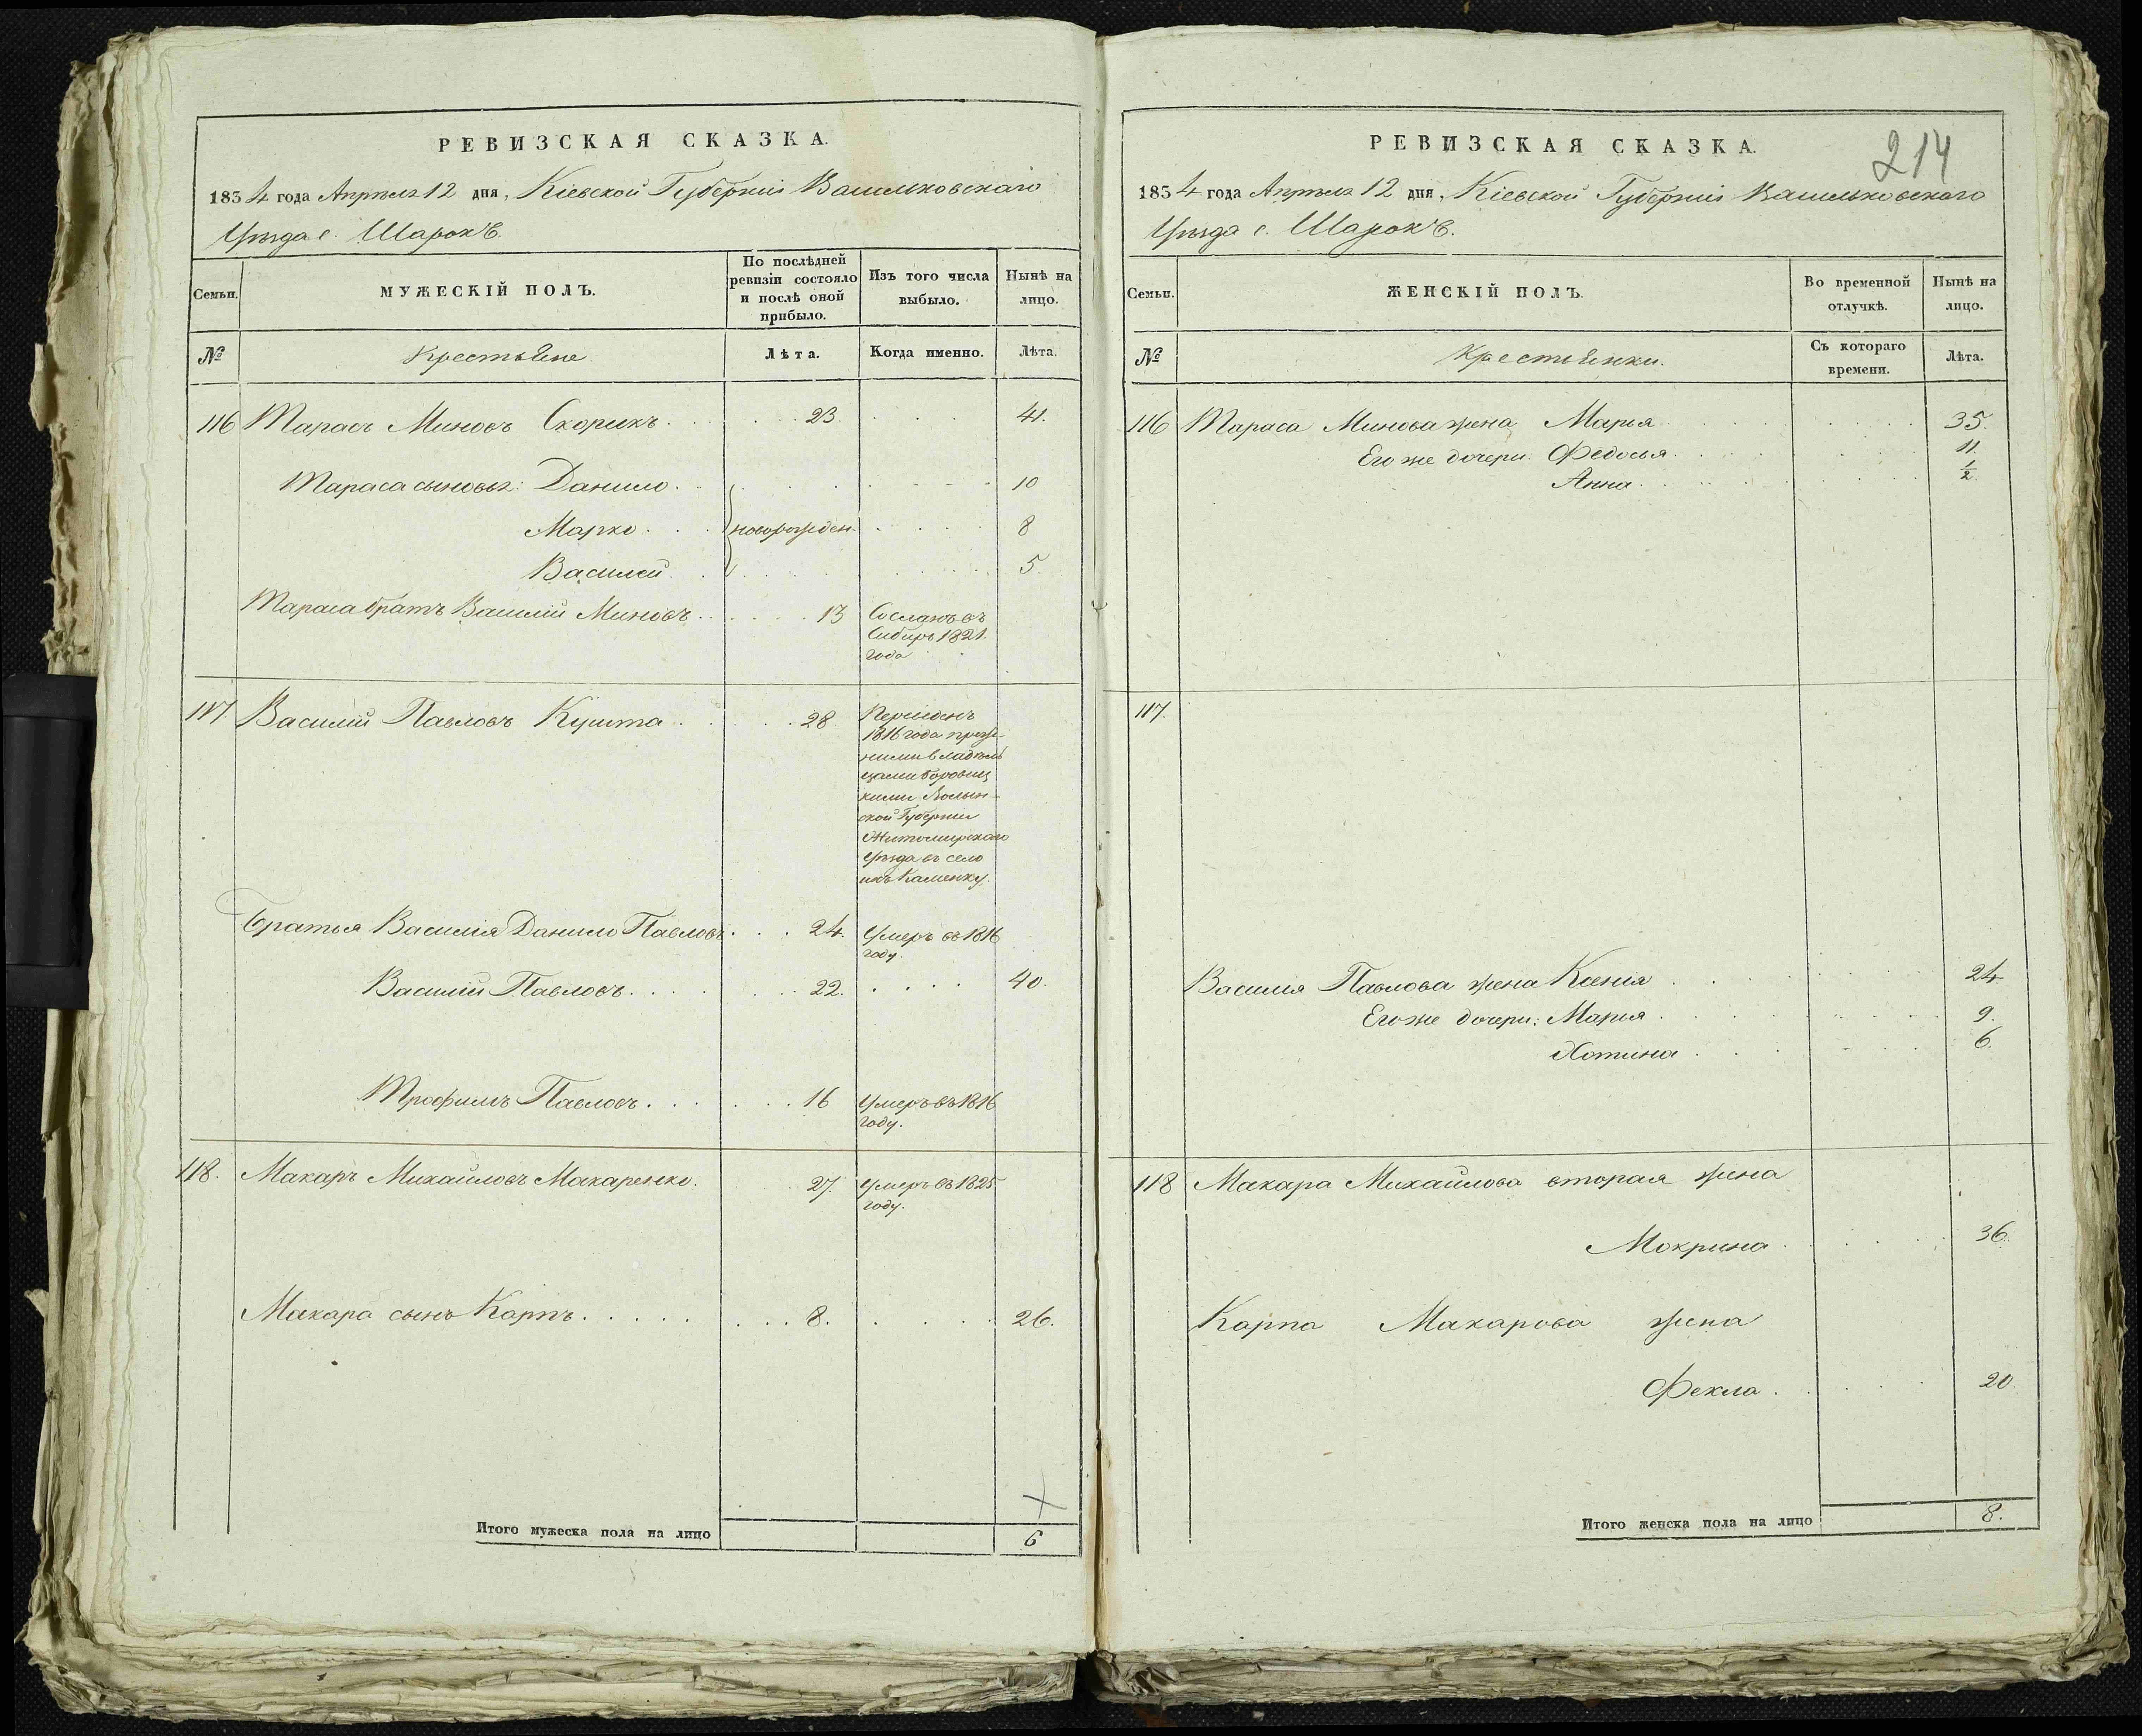 РЕВИЗСКАЯ СКАЗКА.
1834 года Апрѣля 12 дня, Кіевской Губерніи Васильковскаго
Уѣзда с. Шарокъ.
Семьи.
МУЖЕСКІЙ ПОЛЪ.
По послѣдней
ревизіи состояло
и послѣ оной
прибыло.
Изъ того числа
выбыло.
Нынѣ на
лицо.
№
Крестьяне
Лѣта.
Когда именно.
Лѣта.
116 Тарасъ Миновъ Скорикъ 23 41.
Тараса сыновья: Данило 10
Марко новорожден. 8
Василей 5
Тараса братъ Василій Миновъ 13 Сосланъ въ
Сибирь 1821.
года
117 Василій Павловъ Кушта 28 Переведенъ
1816 года преж-
ними владѣль
цами Боровиц
кими Волын-
ской Губерніи
Житомирскаго
Уѣзда въ село
ихъ Каменку.
Братья Василія Данило Павловъ 24. Умеръ въ 1816
году.
Василій Павловъ 22. 40.
Трофимъ Павловъ 16 Умеръ въ 1816
году.
118. Макаръ Михайловъ Макаренко. 27. Умеръ въ 1825
году.
Макара сынъ Карпъ 8. 26.
Итого мужеска пола на лицо 6
214
РЕВИЗСКАЯ СКАЗКА.
1834 года Апрѣля 12 дня, Кіевской Губерніи Васильковскаго
Уѣзда с. Шарокъ.
Семьи.
ЖЕНСКІЙ ПОЛЪ.
Во временной
отлучкѣ.
Нынѣ на
лицо.
№
Крестьянки.
Съ котораго
времени.
Лѣта.
116 Тараса Минова жена Марья 35.
Его же дочери: Федосья 11.
Анна 1/2
117.
Василія Павлова жена Ксенія 24
Его же дочери: Марья 9.
Хотина 6.
118 Макара Михайлова вторая жена
Мокрина 36.
Карпа Макарова жена
Фекла 20
Итого женска пола на лицо 8.